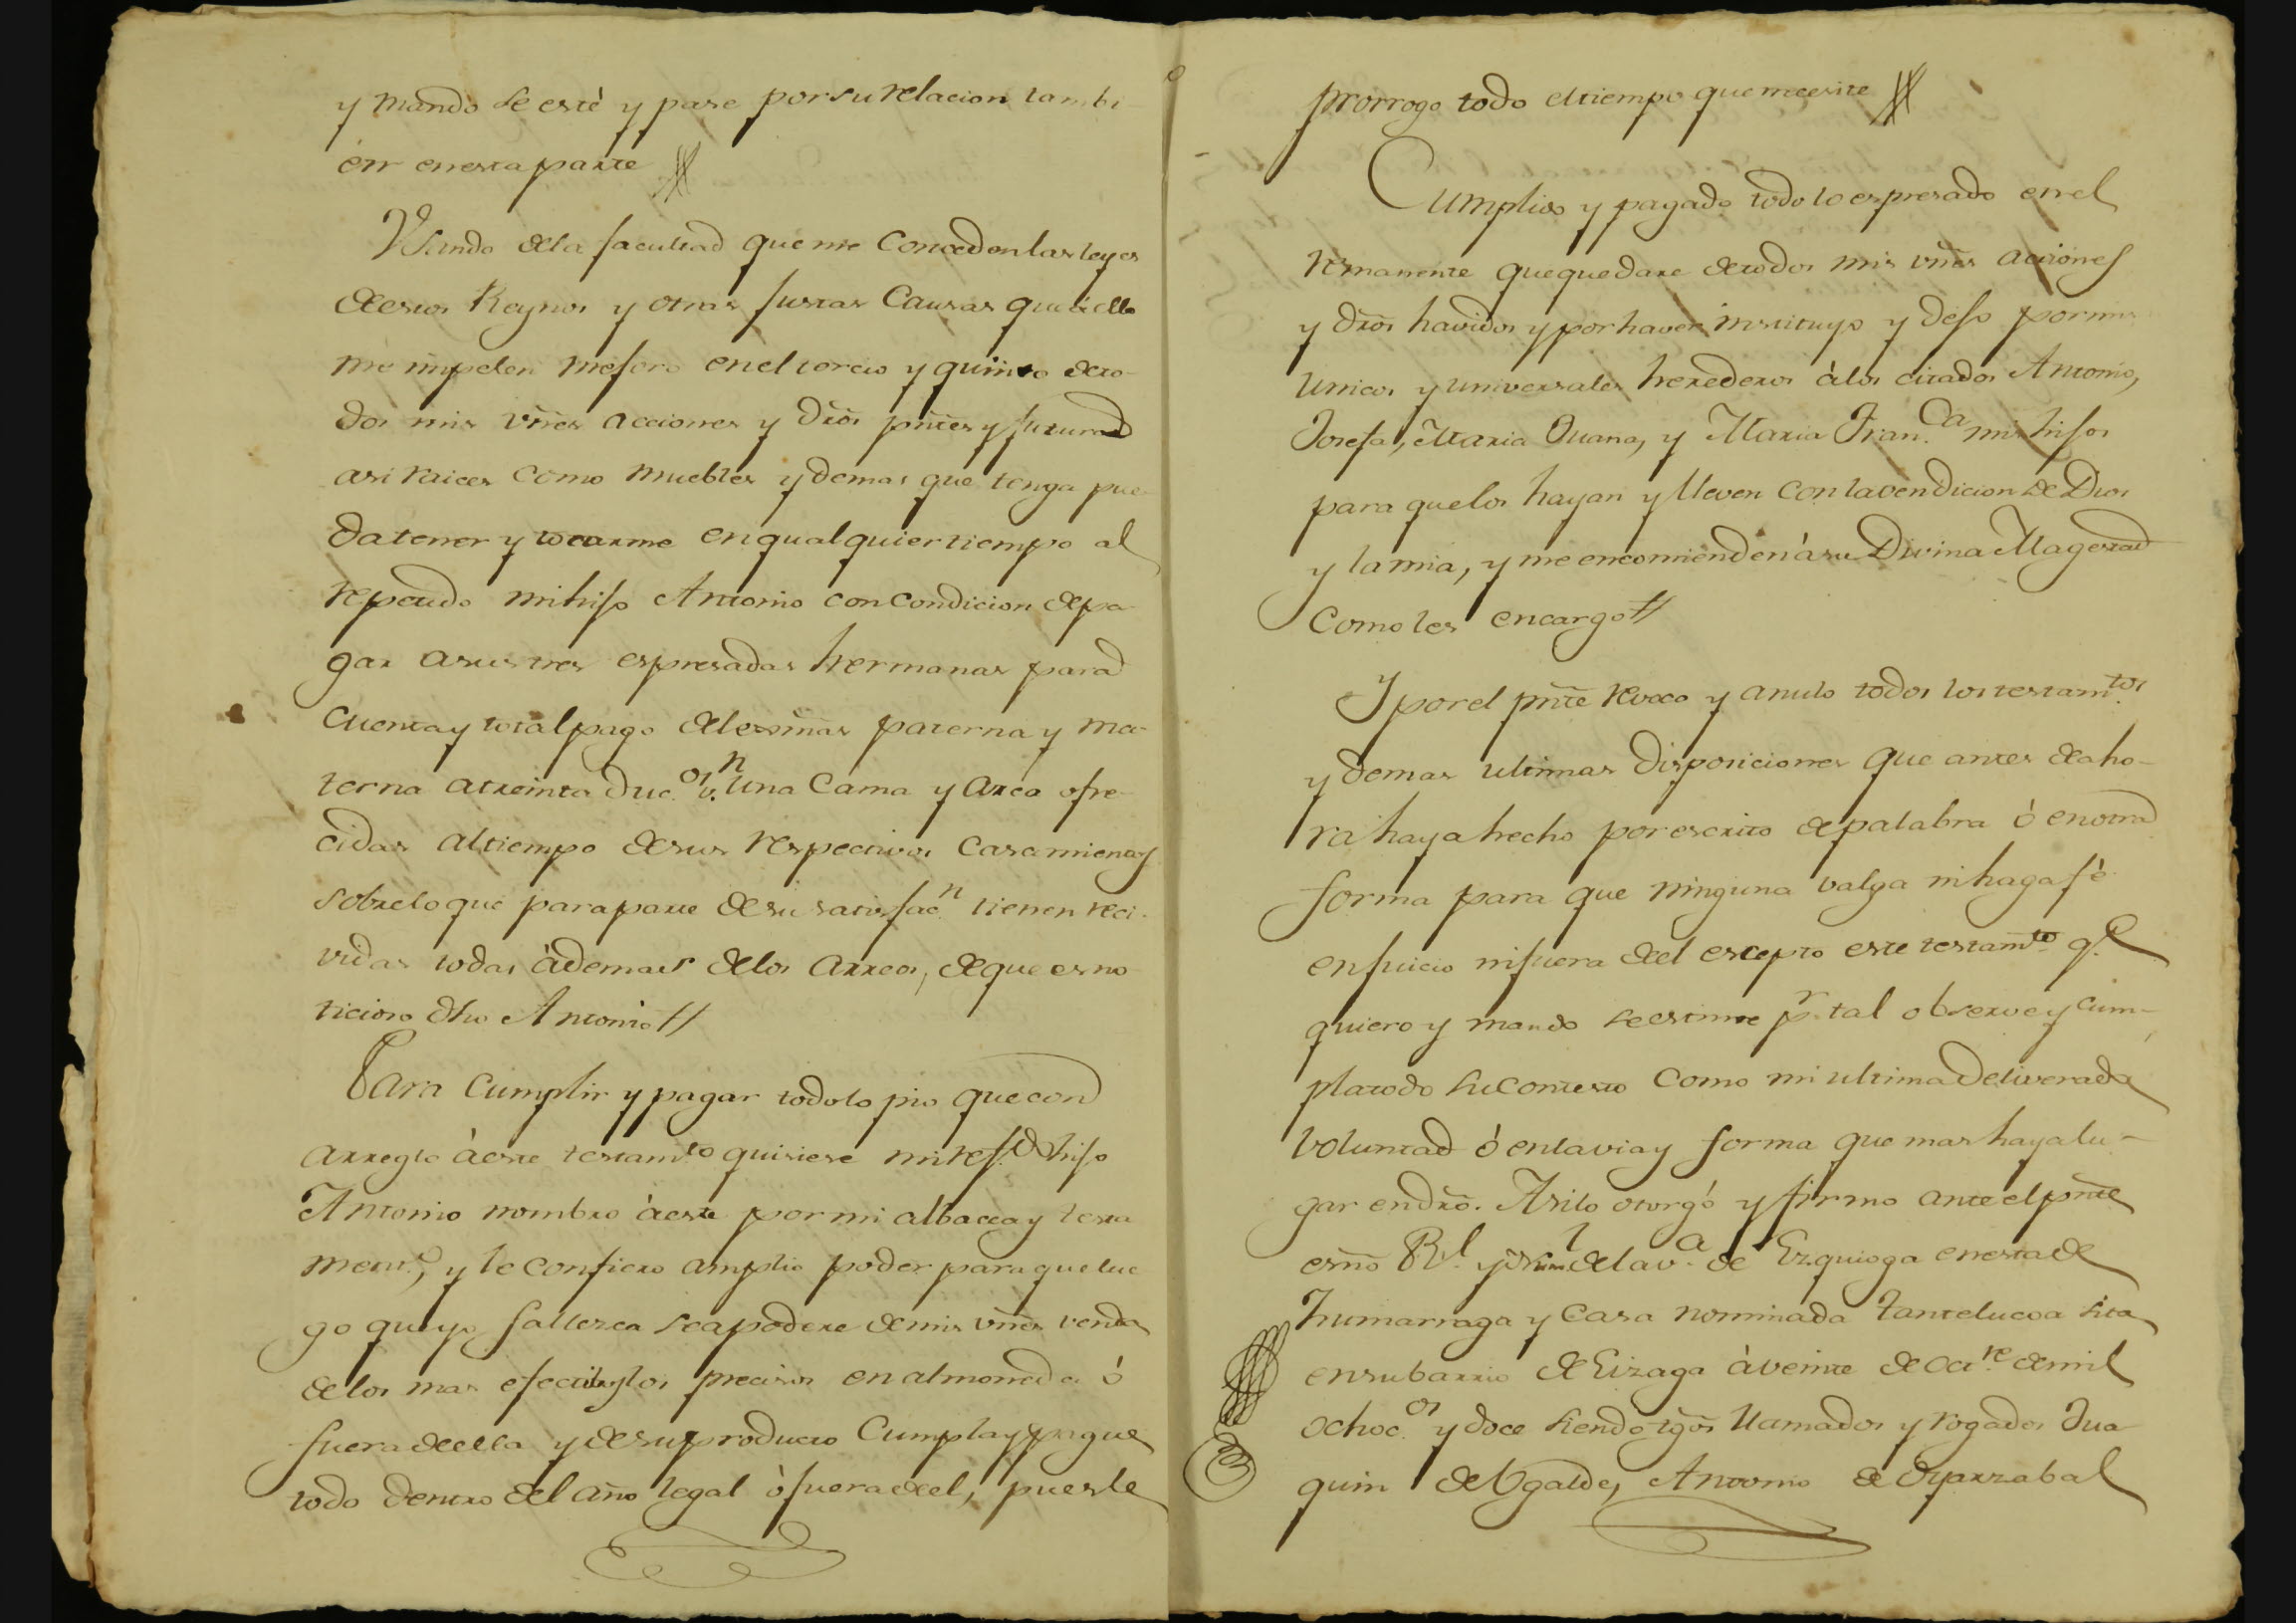 y mando se esté y pase por su relacion tambi
én en esta parte //
Usando de la facultad que me conceden las leyes
de estos Reynos y otras justas causas que á ello
me impelen mejoro en el tercio y quinto de to-
dos mis vñes acciones y dr̃os pñtes y futuros
asi raices como muebles y demas que tenga pue-
da tener y tocarme en qualquier tiempo al
repetido mi hijo Antonio con condicion de pa-
gar a sus tres espresadas hermanas para
cuenta y total pago de lexmas paterna y ma-
terna a treinta duc.os v.n una cama y arca ofre-
cidas al tiempo de sus respectivos casamientos
sobre lo que para parte de su satisfac.n tienen reci-
vidas todas àdemas de los arreos, de que es no-
ticioso dho Antonio //
Para cumplir y pagar todo lo pio que con
arreglo à este testam.to quisiere mi ref.do hijo
Antonio nombro à este por mi albacea y testa
ment.o, y le confiero amplio poder para que lue
go que yo fallezca se apodere de mis vñes venda
de los mas efectibos y los precisos en almoneda ó
fuera de ella y de su producto cumpla y pague
todo dentro del año legal ò fuera de el, pues le
prorrogo todo el tiempo que necesite //
Cumplido y pagado todo lo espresado en el
remanente que quedare de todos mis vñes acciones
y dr̃os havidos y por haver instituyo y dejo por mis
unicos y universales herederos à los citados Antonio,
Josefa, Maria Juana, y Maria Fran.ca mis hijos
para que los hayan y lleven con la vendicion de Dios
y la mia, y me encomienden à su Divina Magestad
como les encargo //
Y por el pñte revoco y anulo todos los testam.tos
y demas ultimas disposiciones que antes de aho-
ra haya hecho por escrito de palabra ó en otra
forma para que ninguna valga ni haga fè
en juicio ni fuera de el escepto este testam.to q.e
quiero y mando se estime p.r tal observe y cum-
pla todo su contesto como mi ultima deliverada
voluntad ó en la via y forma que mas haya lu-
gar en dr̃o. Asi lo otorgó y firmo ante el pñte
esño R.l y Num.l de la v.a de Ezquioga en esta de
Zumarraga y casa nominada Zantelucoa sita
en su barrio de Eizaga à veinte de Oct.re de mil
ochoc.os y doce siendo tgos llamados y rogados Jua
quin de Ugalde, Antonio de Oyarzabal